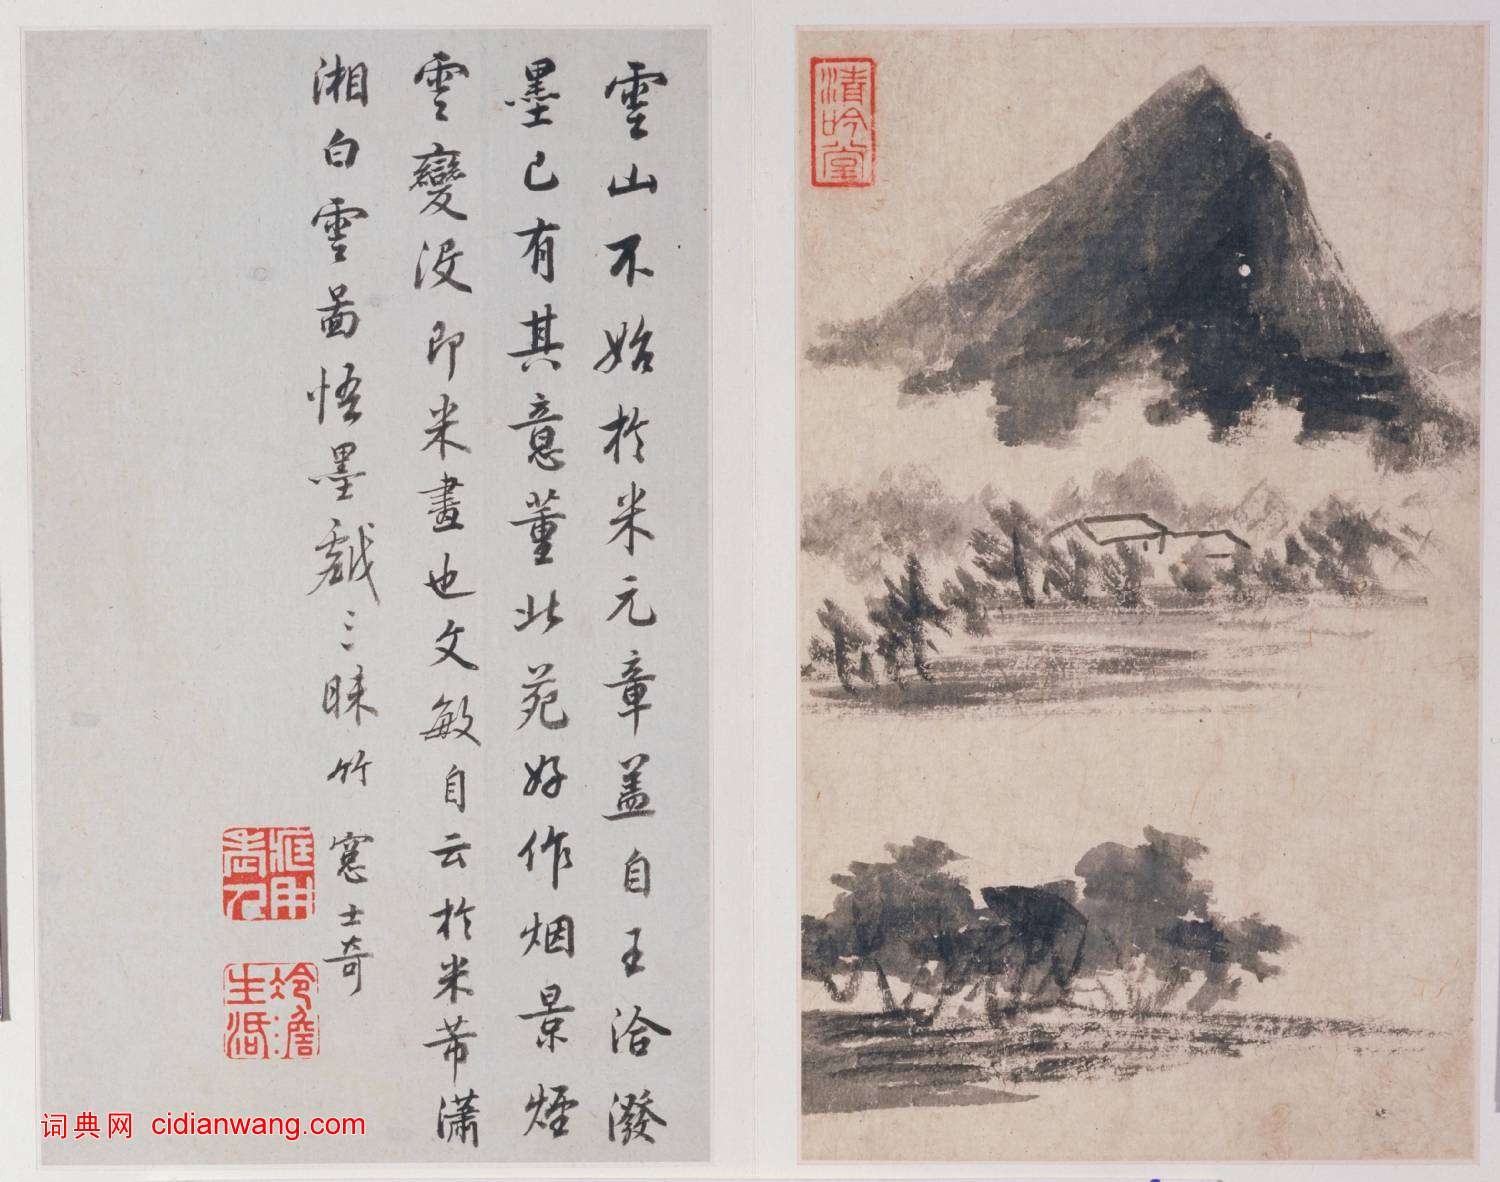 雲山不始於米元章盖自王洽潑
墨已有其意董北苑好作烟景煙
雲變没即米畫也文敏自云於米芾瀟
湘白雲啚悟墨戲三昧竹窓士奇
用老人
冷澹生活
清吟堂
词典网 cidianwang.com